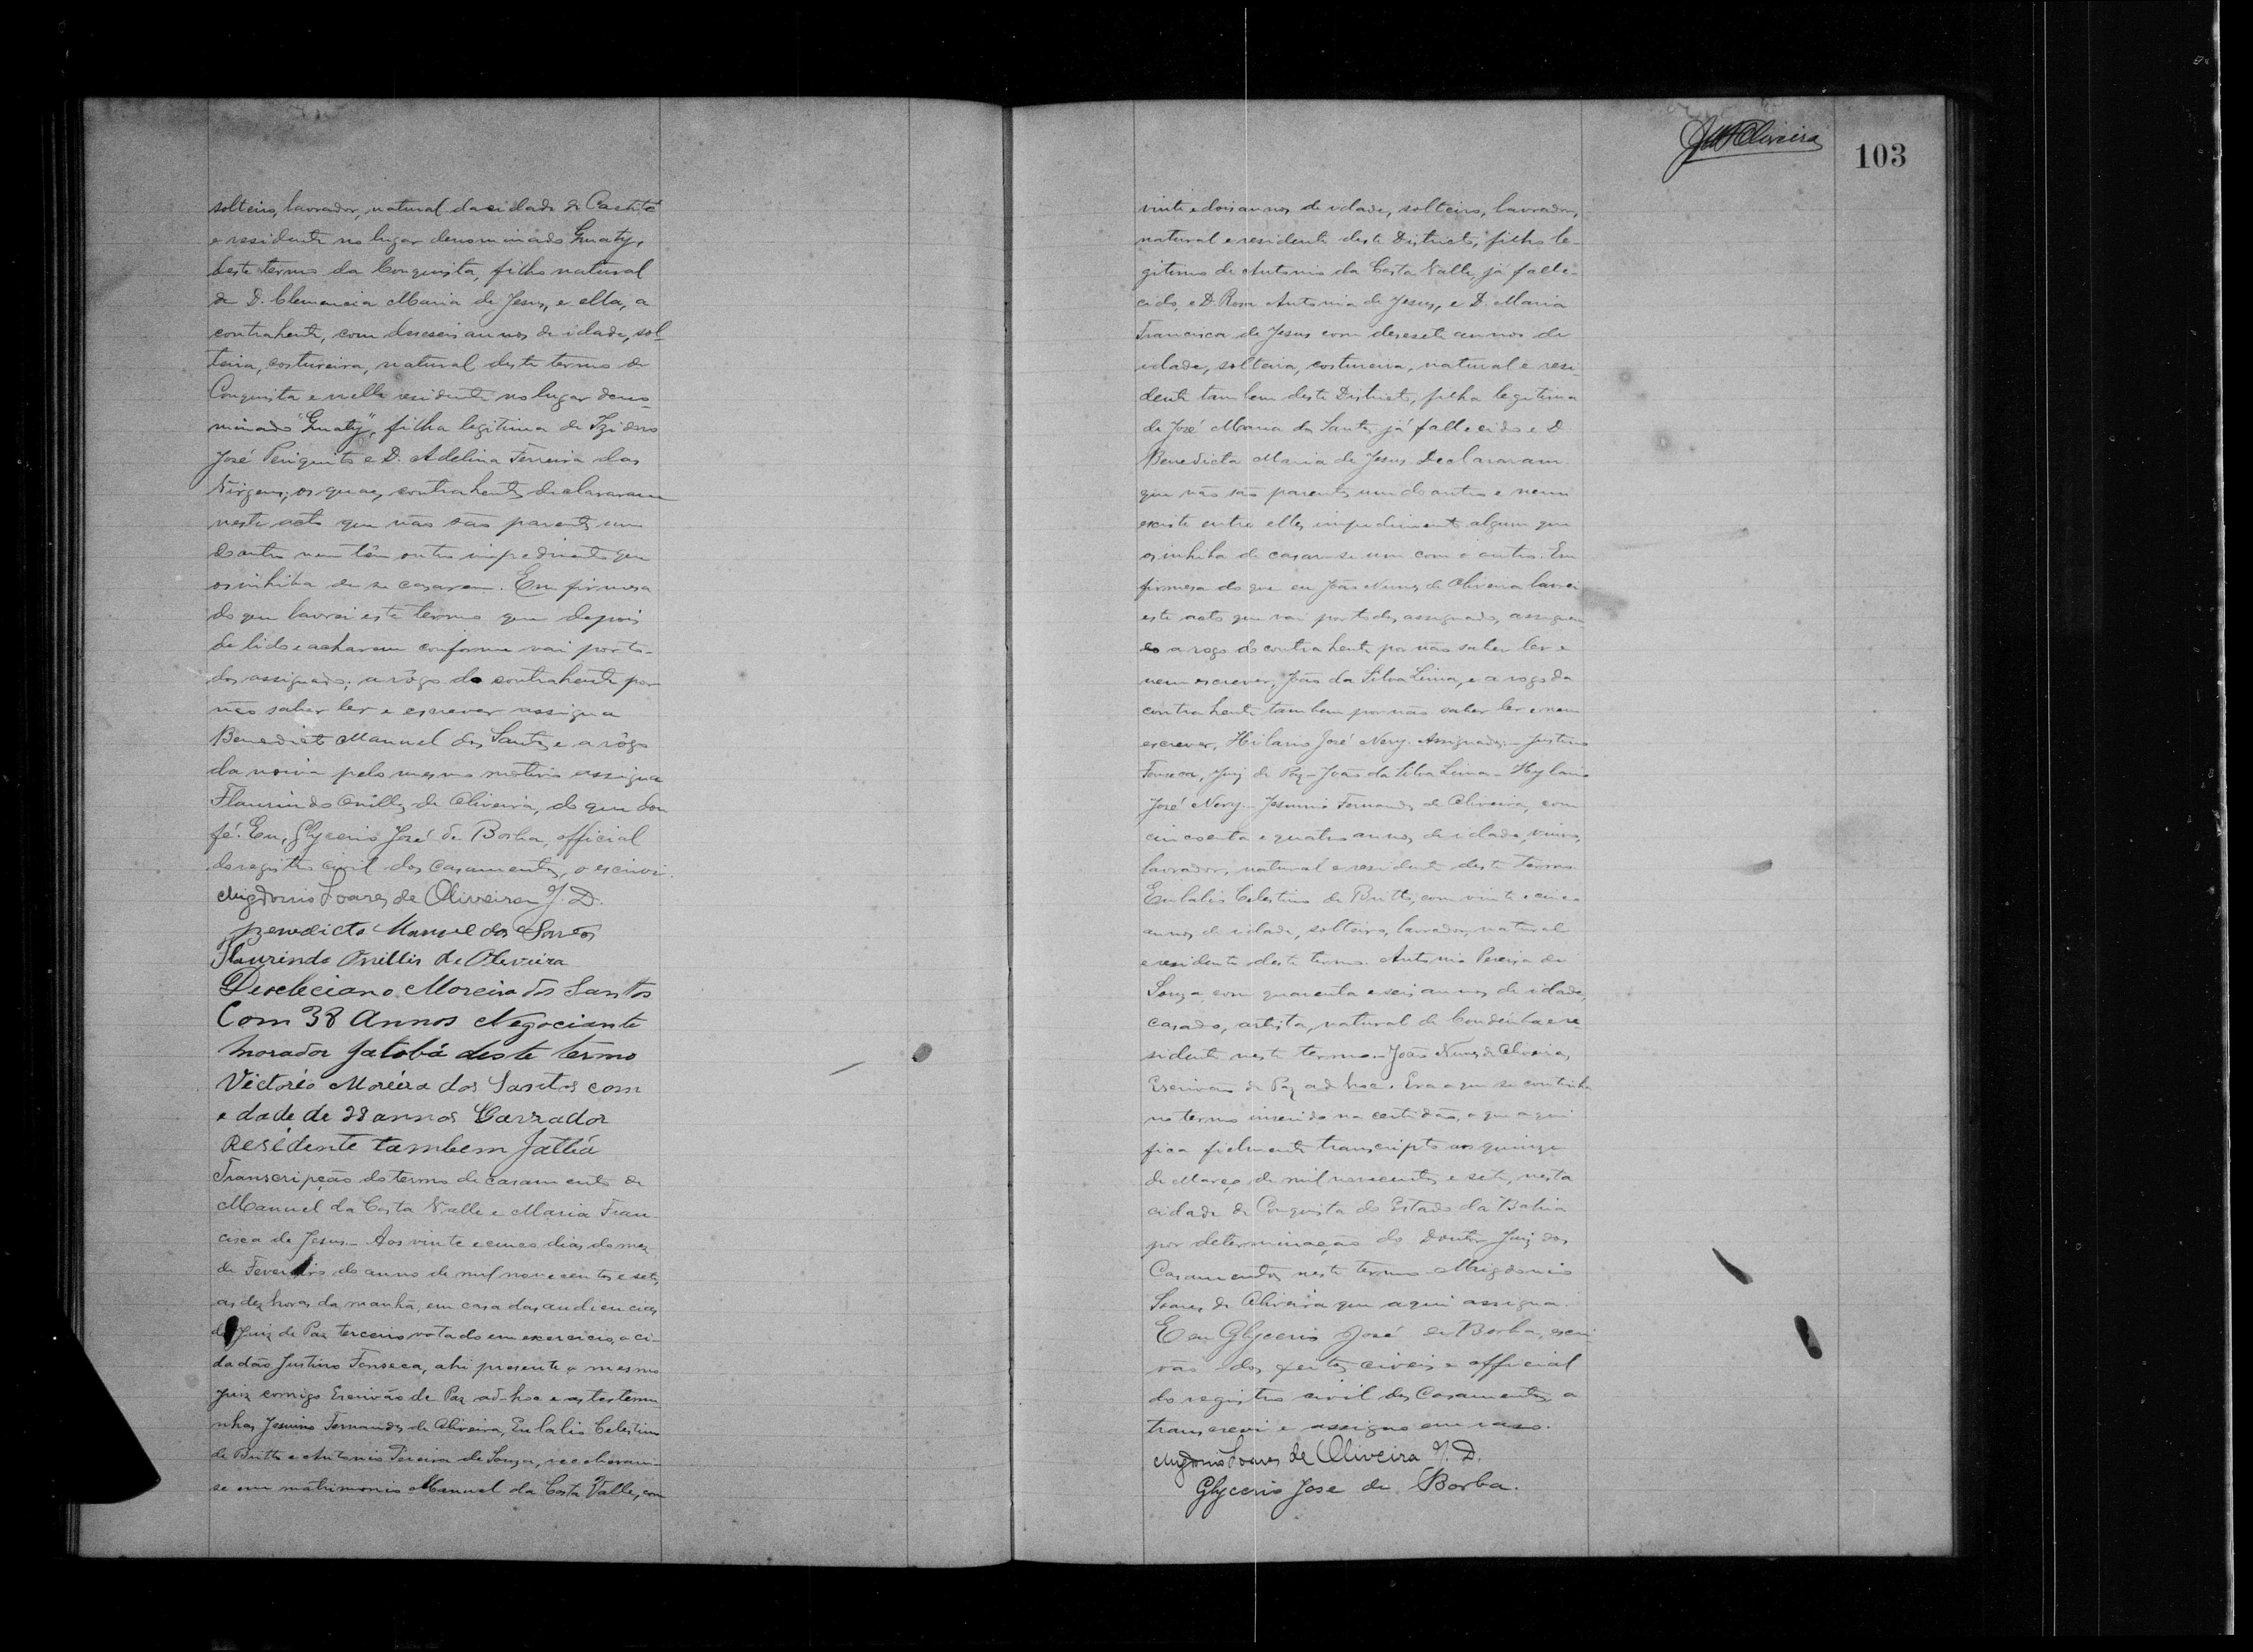 solteiro, lavrador, natural da cidade de Caetité
e residente no lugar denominado Guaty,
deste termo da Conquista, filho natural
de D. Clemencia Maria de Jesus, e ella, a
contrahente, com deseseis annos de idade, sol-
teira, costureira, natural deste termo de
Conquista e nelle residente no lugar deno-
minado "Guaty", filha legitima de Izidoro
José Periquito e D. Adelina Ferreira das
Virgens; os quaes contrahentes declararam
neste acto que não são parentes um
do outro nem têm outro impedimento que
os inhiba de se casarem. Em firmesa
do que lavrei este termo que depois
de lido e acharem conforme vai por to-
dos assignado; a rôgo do contrahente por
não saber ler e escrever assigna
Benedicto Manuel dos Santos e a rôgo
da noiva pelo mesmo motivo assigna
Flaurindo Onillis de Oliveira, do que dou
fé. Eu, Glycerio José de Borba, official
do registro civil dos casamentos, o escrivi.
Migdonio Soares de Oliveira J. D.
Benedicto Manuel dos Santos
Flaurindo Onillis de Oliveira
Deocleciano Moreira dos Santos
Com 38 Annos Negociante
morador Jatobá deste termo
Victorio Moreira dos Santos com
edade de 28 annos Lavrador
Residente tambem
Transcripção do termo de casamento de
Manuel da Costa Valle e Maria Fran-
cisca de Jesus. Aos vinte e cinco dias do mez
de Fevereiro do anno de mil novecentos e sete,
as dez horas da manhã, em casa das audiencias
do Juiz de Paz terceiro votado em exercicio, o ci-
dadão Justino Fonseca, ahi presente o mesmo
Juiz comigo Escrivão de Paz ad-hoc e as testemu-
nhas Jesuino Fernandes de Oliveira, Eulalio Celestino
de Britto e Antonio Pereira de Souza, receberam-
se em matrimonio Manuel da Costa Valle, com
J Oliveira
103
vinte e dois annos de idade, solteiro, lavrador,
natural e residente deste Districto, filho le-
gitimo de Antonio da Costa Valle, já falle-
cido, e D. Rosa Antonia de Jesus, e D. Maria
Francisca de Jesus com desesete annos de
idade, solteira, costureira, natural e resi-
dente tambem deste Districto, filha legitima
de José Maria dos Santos, já fallecido e D.
Benedicta Maria de Jesus. Declararam
que não são parentes um do outro e nem
existe entre elles impedimento algum que
os inhiba de casarem-se um com o outro. Em
firmesa do que eu João Nunes de Oliveira lavrei
este acto que vai por todos assignado, assignan
do a rogo do contrahente por não saber ler e
nem escrever, João da Silva Lima, e a rogo da
contrahente tambem por não saber ler e nem
escrever, Hilario José Nery. Assignados: Justino
Fonseca, Juiz de Paz - João da Silva Lima - Hylario
José Nery - Jesuino Fernandes de Oliveira, com
cincoenta e quatro annos de idade, viuvo,
lavrador, natural e residente deste termo.
Eulalio Celestino de Britto, com vinte e cinco
annos de idade, solteiro, lavrador, natural
e residente deste termo. Antonio Pereira de
Souza, com quarenta e seis annos de idade,
casado, artista, natural de Condeúba e re
sidente neste termo. João Nunes de Oliveira,
Escrivão de Paz ad hoc. Era o que se continha
no termo inserido na certidão, o que aqui
fica fielmente transcripto aos quinze
de Março de mil novecentos e sete, nesta
cidade de Conquista do Estado da Bahia
por determinação do Doutor Juiz dos
Casamentos neste termo Migdonio
Soares de Oliveira que aqui assigna.
E eu Glycerio José de Borba, escri-
vão dos feitos civeis e official
do registro civil dos Casamentos, a
transcrevi e assigno em raso.
Migdonio Soares de Oliveira J. D.
Glycerio Jose de Borba.